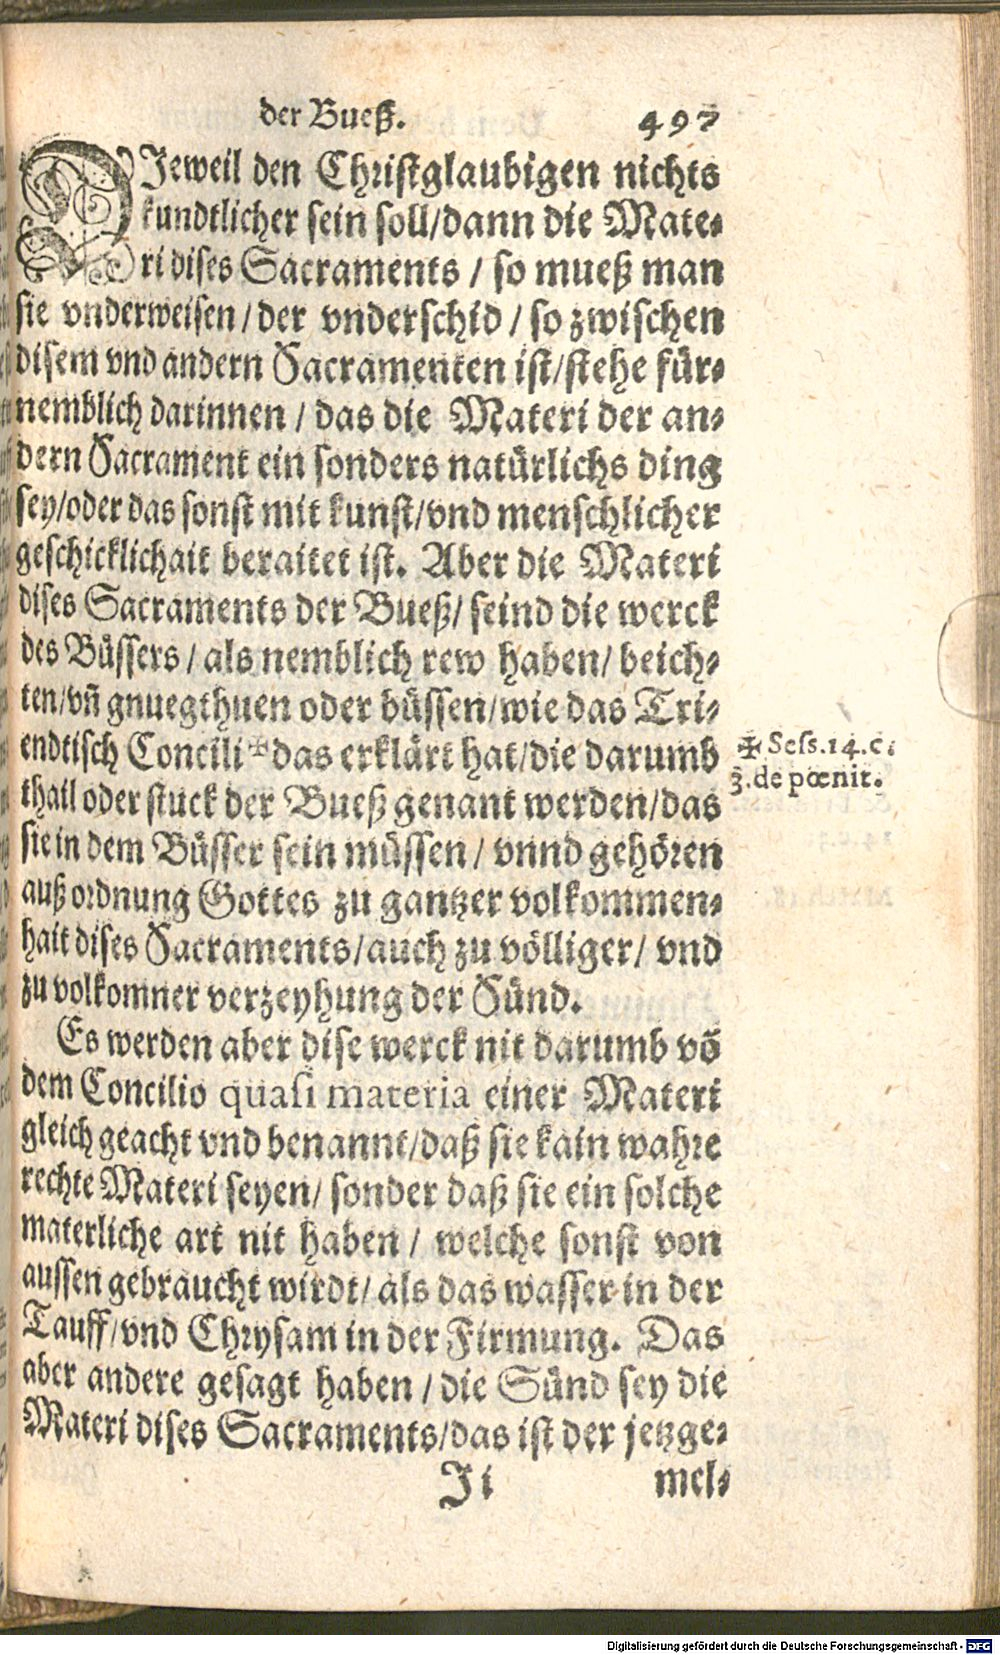 der Bueß. 497
DJeweil den Christglaubigen nichts
kundtlicher sein soll/dann die Mate-
ri dises Sacraments / so mueß man
sie vnderweisen / der vnderschid / so zwischen
disem vnd andern Sacramenten ist/stehe für-
nemblich darinnen / das die Materi der an-
dern Sacrament ein sonders natürlichs ding
sey/oder das sonst mit kunst/vnd menschlicher
geschicklichait beraitet ist. Aber die Materi
dises Sacraments der Bueß/ seind die werck
des Büssers / als nemblich rew haben/ beich-
ten/vñ gnuegthuen oder büssen/wie das Tri-
endtisch Concili ✠ das erklärt hat/die darumb
thail oder stuck der Bueß genant werden/das
sie in dem Büsser sein müssen / vnnd gehören
auß ordnung Gottes zu gantzer volkommen-
hait dises Sacraments/auch zu völliger/ vnd
zu volkomner verzeyhung der Sünd.
Es werden aber dise werck nit darumb võ
dem Concilio quasi materia einer Materi
gleich geacht vnd benannt/daß sie kain wahre
rechte Materi seyen/ sonder daß sie ein solche
materliche art nit haben / welche sonst von
aussen gebraucht wirdt/ als das wasser in der
Tauff/vnd Chrysam in der Firmung. Das
aber andere gesagt haben / die Sünd sey die
Materi dises Sacraments/das ist der jetzge-
Ji mel-
✠ Sess.14.c.
3. de pœnit.
Digitalisierung gefördert durch die Deutsche Forschungsgemeinschaft - DFG